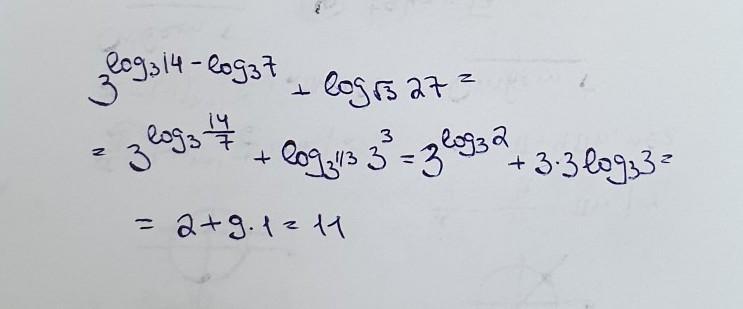 3^{log_3 14 - log_3 7} + log_{√3} 27 =
= 3^{log_3 \frac{14}{7}} + log_{3^{1/3}} 3^3 = 3^{log_3 2} + 3·3 log_3 3 =
= 2+9·1 = 11